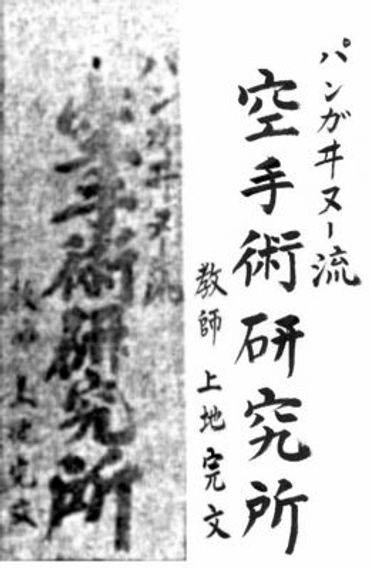 パンガヰヌー流
空手術研究所
教師 上地完文
パンガヰヌー流
空手術研究所
教師 上地完文